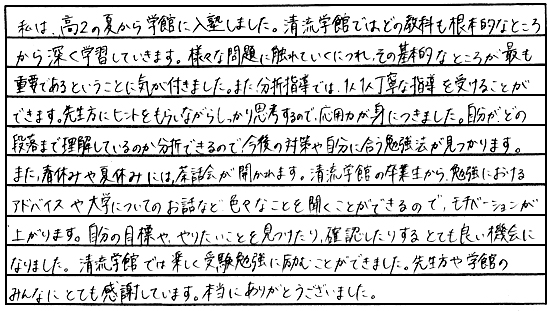 私は、高2の夏から学館に入塾しました。清流学館ではどの教科も根本的なところ
から深く学習していきます。様々な問題に触れていくにつれ、その基本的なところが最も
重要であるということに気が付きました。また、分析指導では、1人1人丁寧な指導を受けることが
できます。先生方にヒントをもらいながらしっかり思考するので、応用力が身につきました。自分が、どの
段落まで理解しているのか分析できるので今後の対策や自分に合う勉強法が見つかります。
また、春休みや夏休みには、茶話会が開かれます。清流学館の卒業生から、勉強における
アドバイスや大学についてのお話など色々なことを聞くことができるので、モチベーションが
上がります。自分の目標や、やりたいことを見つけたり、確認したりするとても良い機会に
なりました。清流学館では楽しく受験勉強に励むことができました。先生方や学館の
みんなにとても感謝しています。本当にありがとうございました。